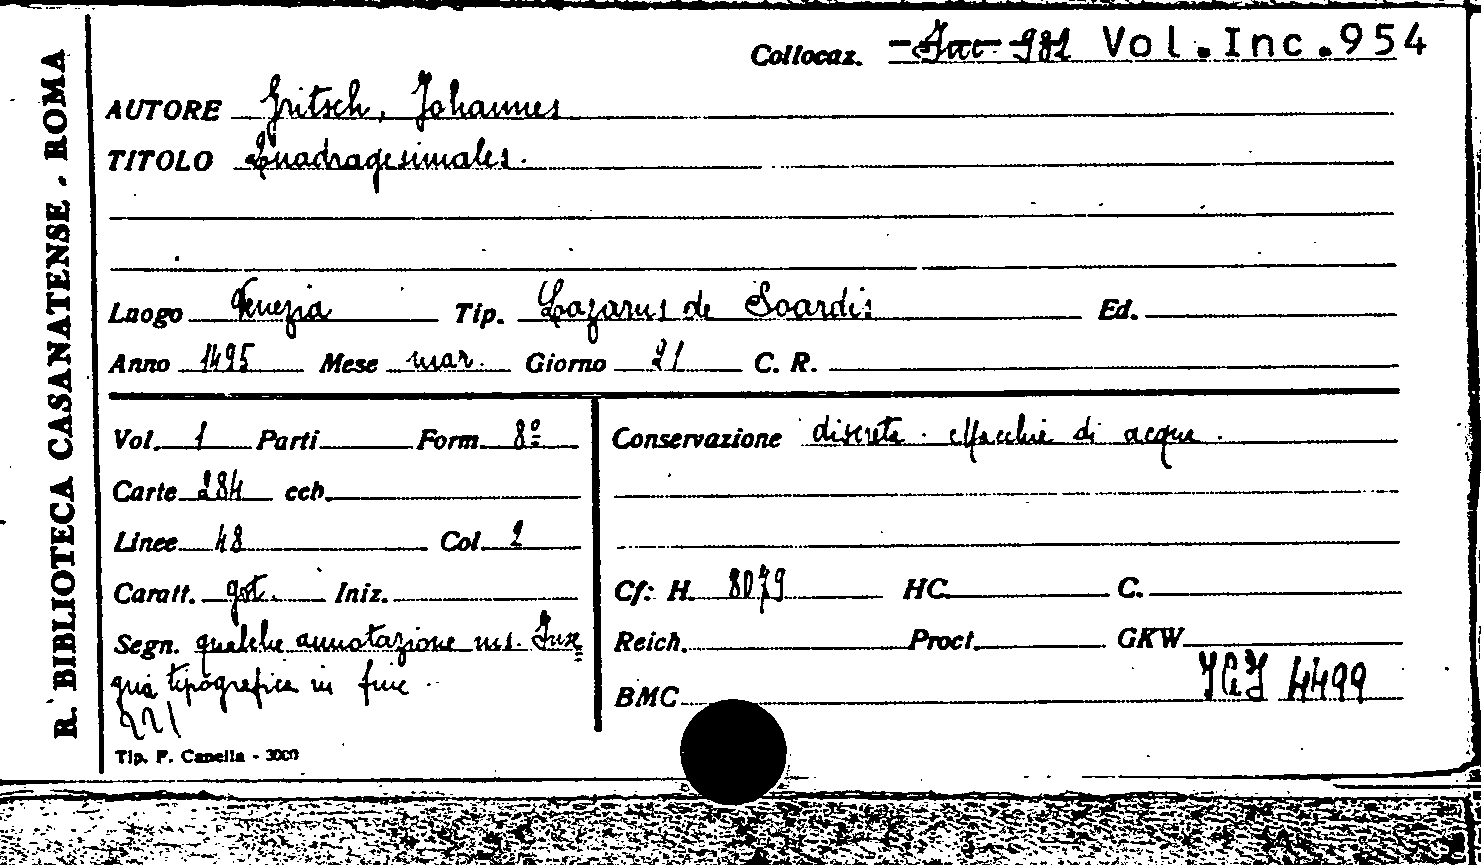 R. BIBLIOTECA CASANATENSE . ROMA
Collocaz. Inc 982 Vol.Inc.954
AUTORE Gritsch, Johannes
TITOLO Quadragesimales.
Luogo Venezia Tip. Lazarus de Soardis Ed.
Anno 1495 Mese mar. Giorno 21 C. R.
Vol. 1 Parti Form. 8º Conservazione discreta. Macchie di acqua.
Carte 284 ccb.
Linee 48 Col. 2
Caratt. got. Iniz. Cf: H. 8079 HC. C.
Segn. qualche annotazione ms. Inse Reich. Proct. GKW
gna tipografica in fine. BMC IGI 4499
221
Tip. F. Canella - 3000